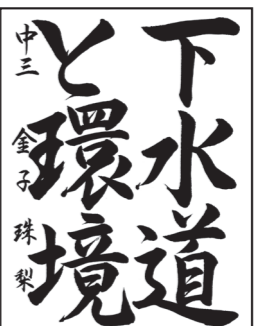 下水道
と環境
中三 金子 珠梨